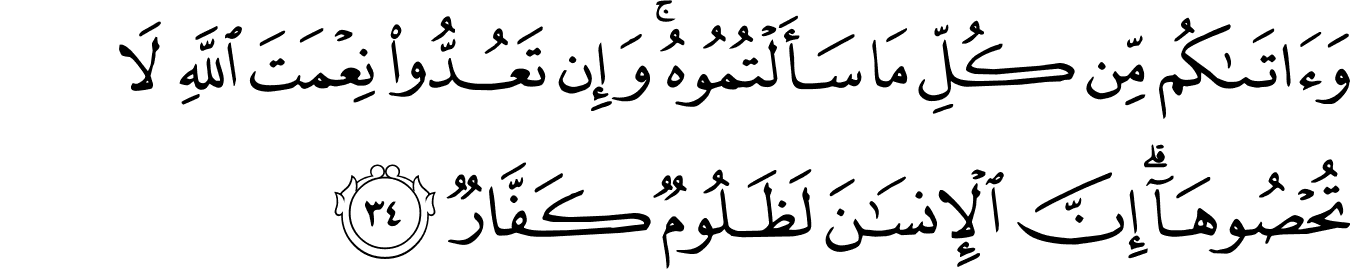 وَءَاتَىٰكُم مِّن كُلِّ مَا سَأَلْتُمُوهُ ۚ وَإِن تَعُدُّوا۟ نِعْمَتَ ٱللَّهِ لَا
تُحْصُوهَآ ۗ إِنَّ ٱلْإِنسَـٰنَ لَظَلُومٌ كَفَّارٌ ٣٤